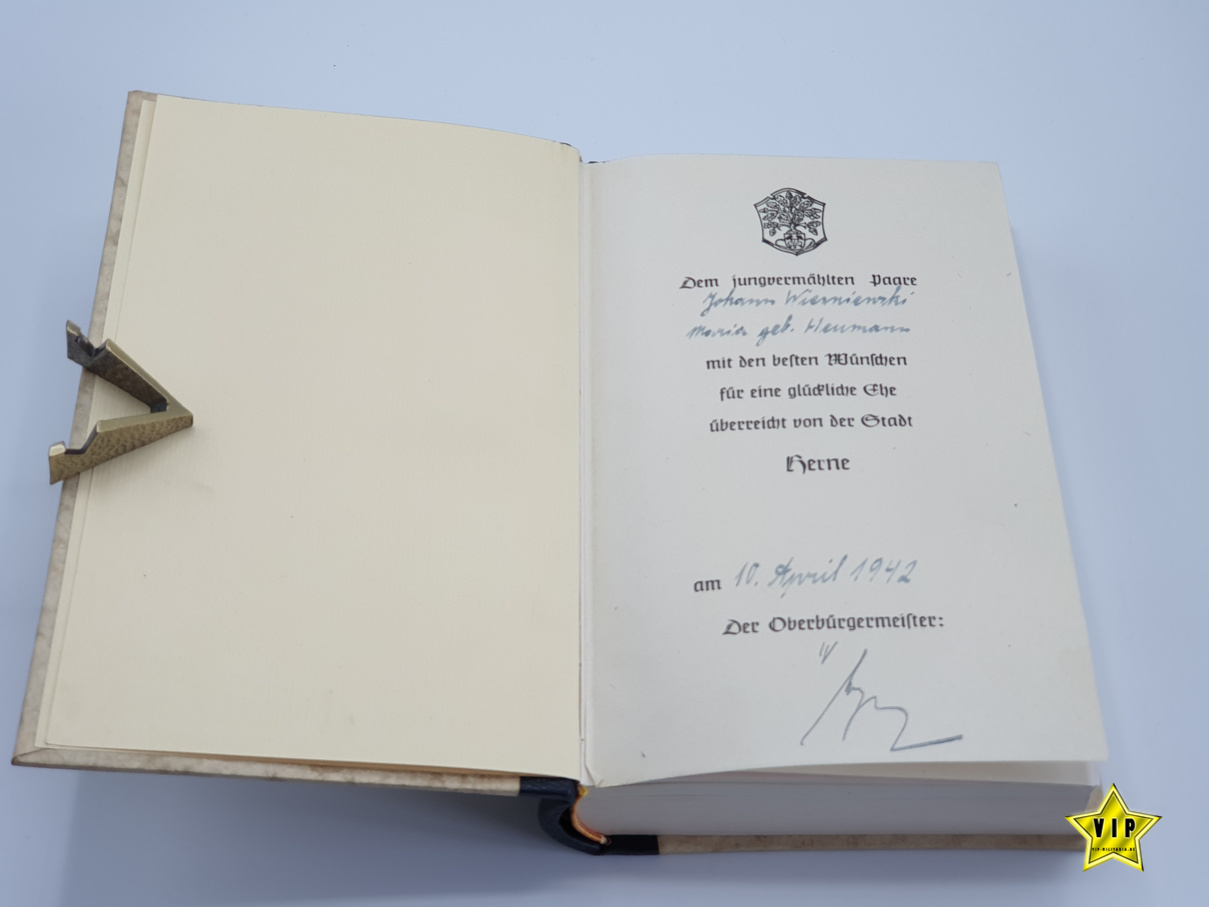 Dem jungvermählten Paare
Johann Wisniewski
Maria geb. Heumann
mit den besten Wünschen
für eine glückliche Ehe
überreicht von der Stadt
Herne
am 10. April 1942
Der Oberbürgermeister:
VIP
VIP-MILITARIA.DE